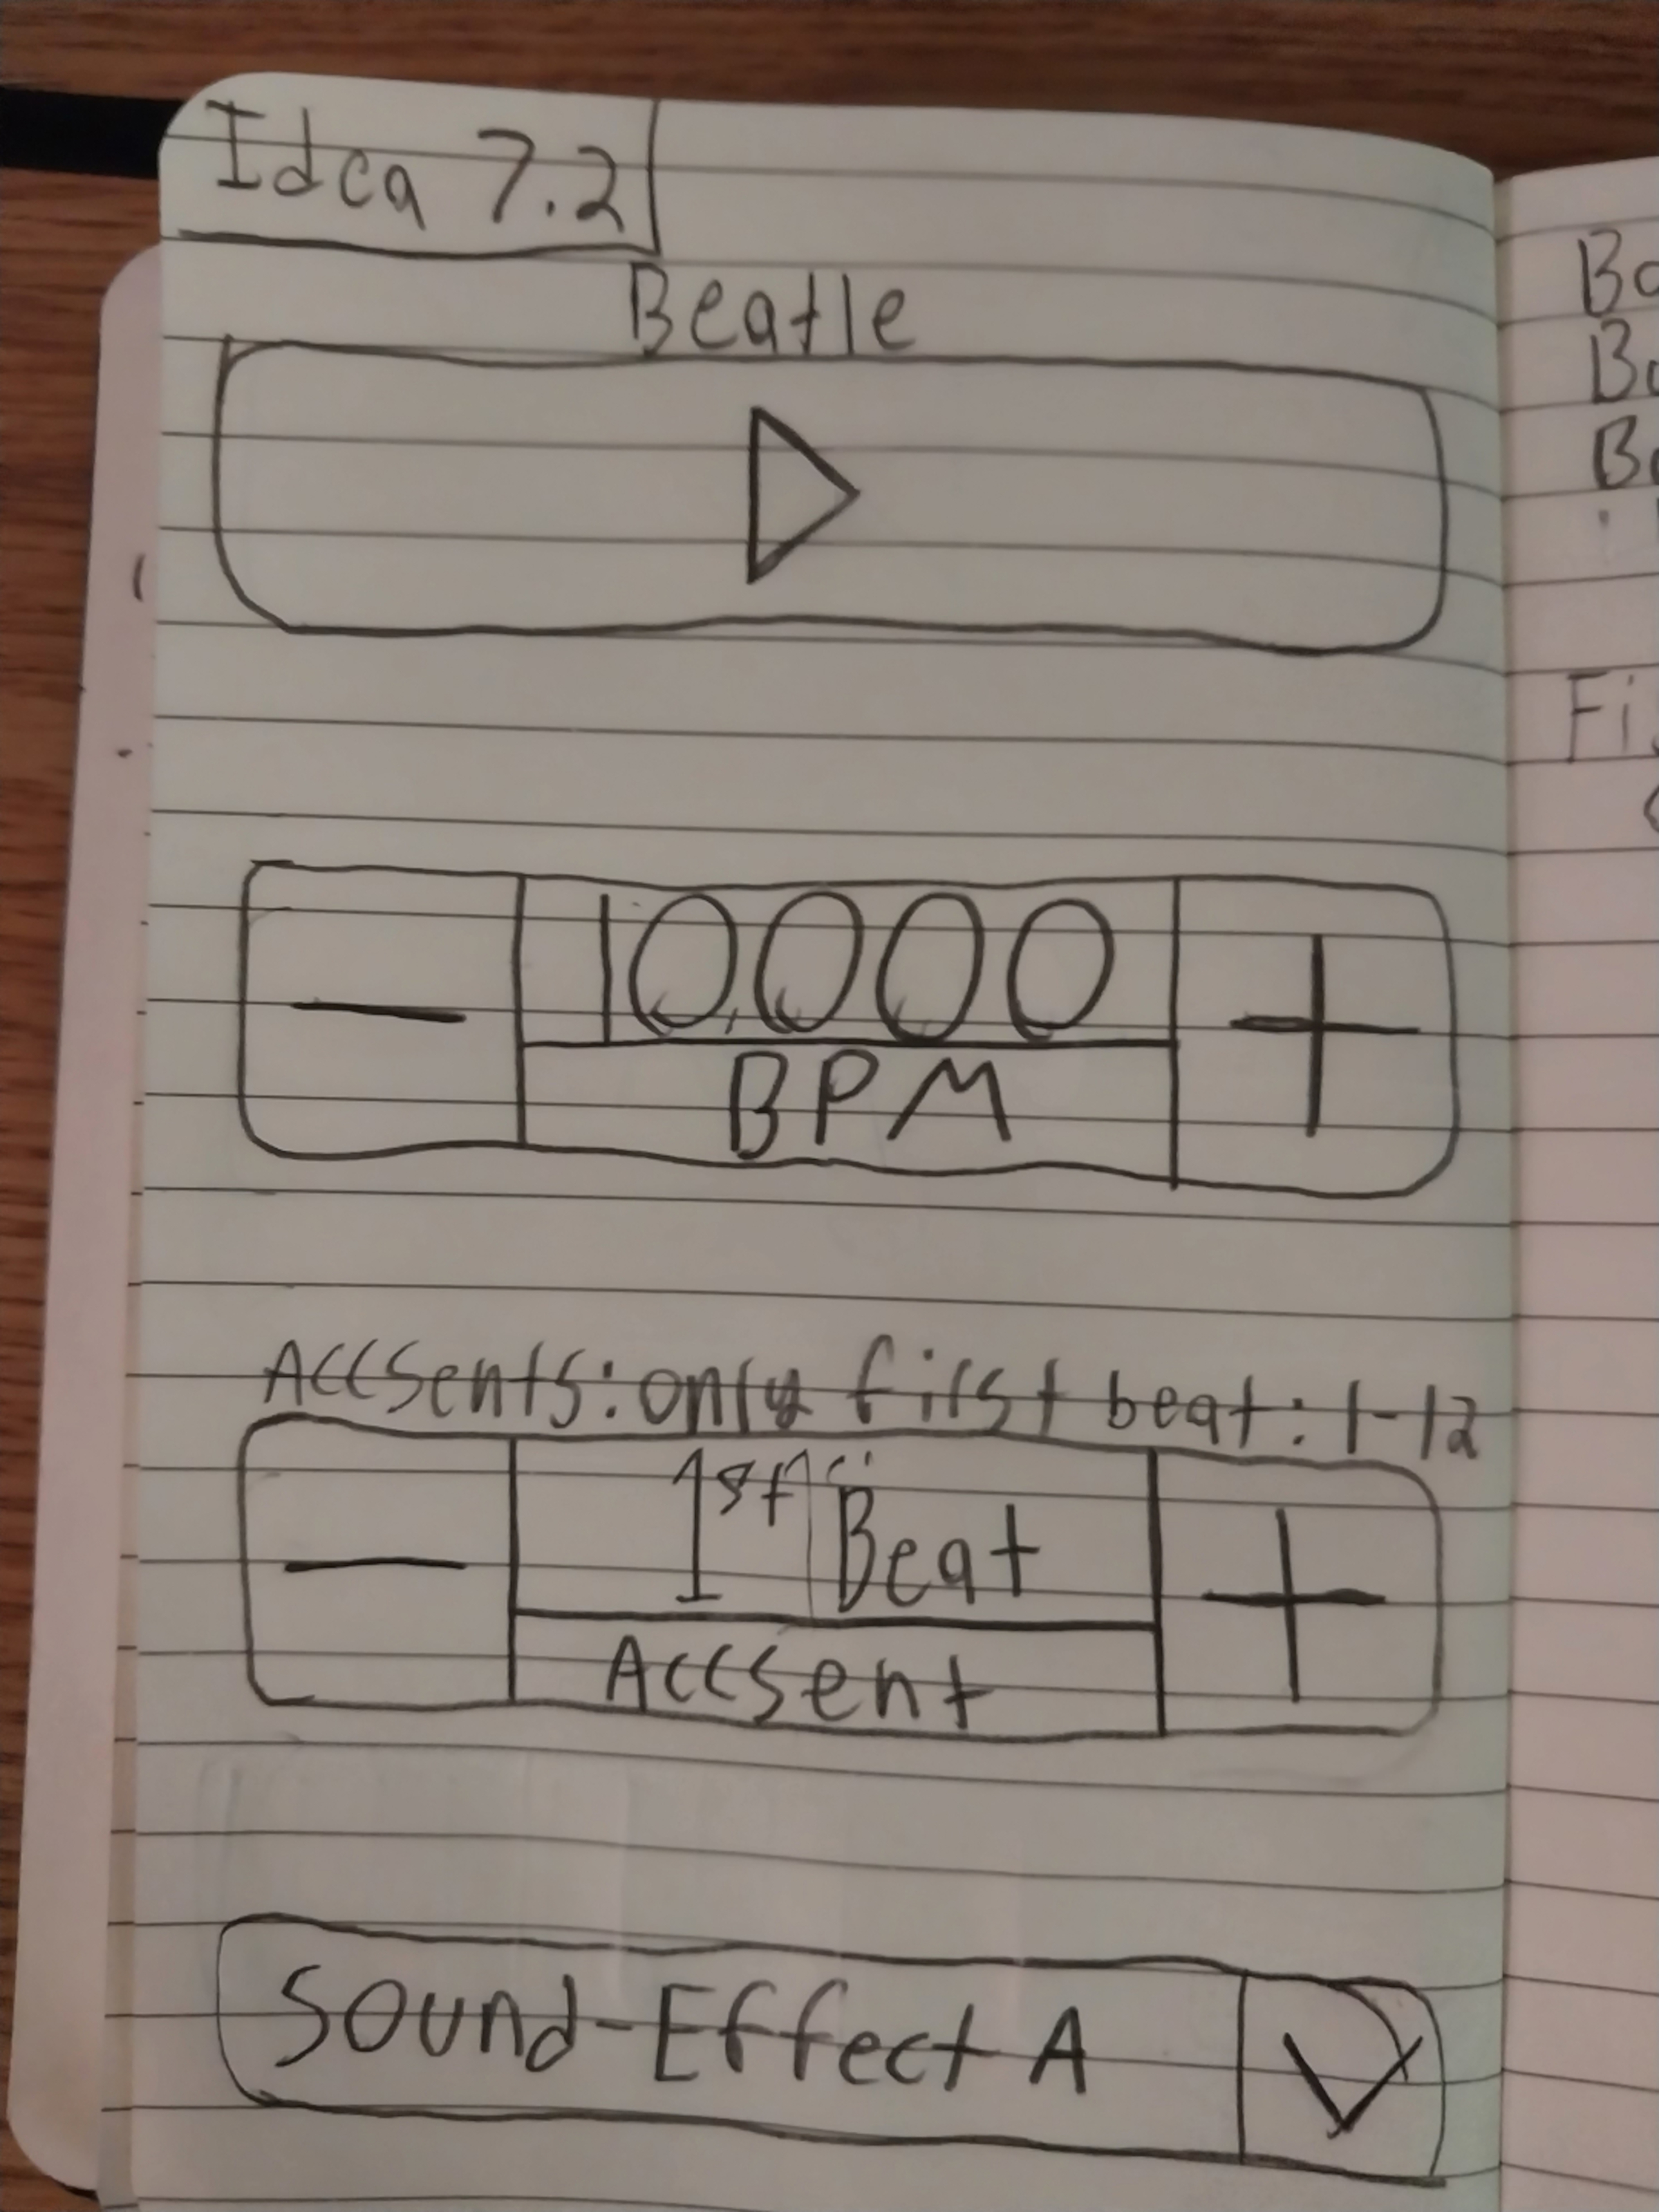 Idea 7.2
Beatle
10,000
BPM
Accsents: only first beat: 1-12
1st Beat
Accsent
Sound-Effect A